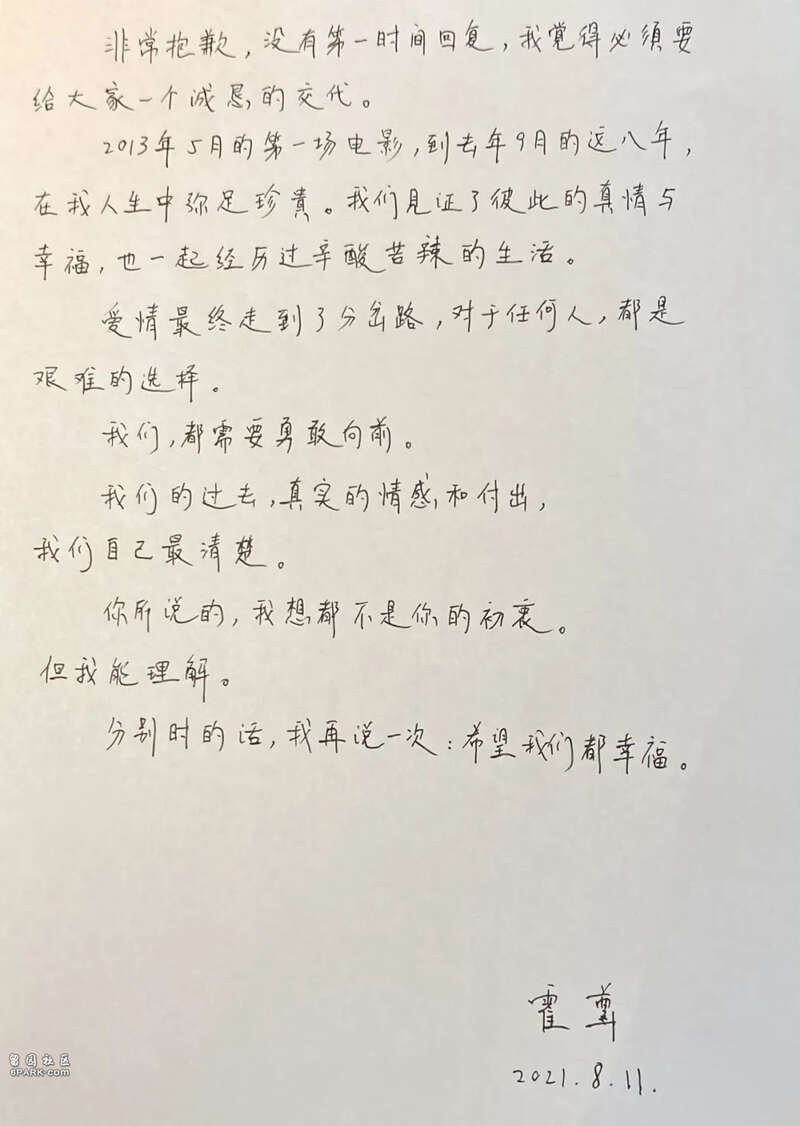 非常抱歉，没有第一时间回复，我觉得必须要
给大家一个诚恳的交代。
2013年5月的第一场电影，到去年9月的这八年，
在我人生中弥足珍贵。我们见证了彼此的真情与
幸福，也一起经历过辛酸苦辣的生活。
爱情最终走到了分岔路，对于任何人，都是
艰难的选择。
我们，都需要勇敢向前。
我们的过去，真实的情感和付出，
我们自己最清楚。
你所说的，我想都不是你的初衷。
但我能理解。
分别时的话，我再说一次：希望我们都幸福。
霍尊
2021.8.11.
留园社区
6PARK.COM